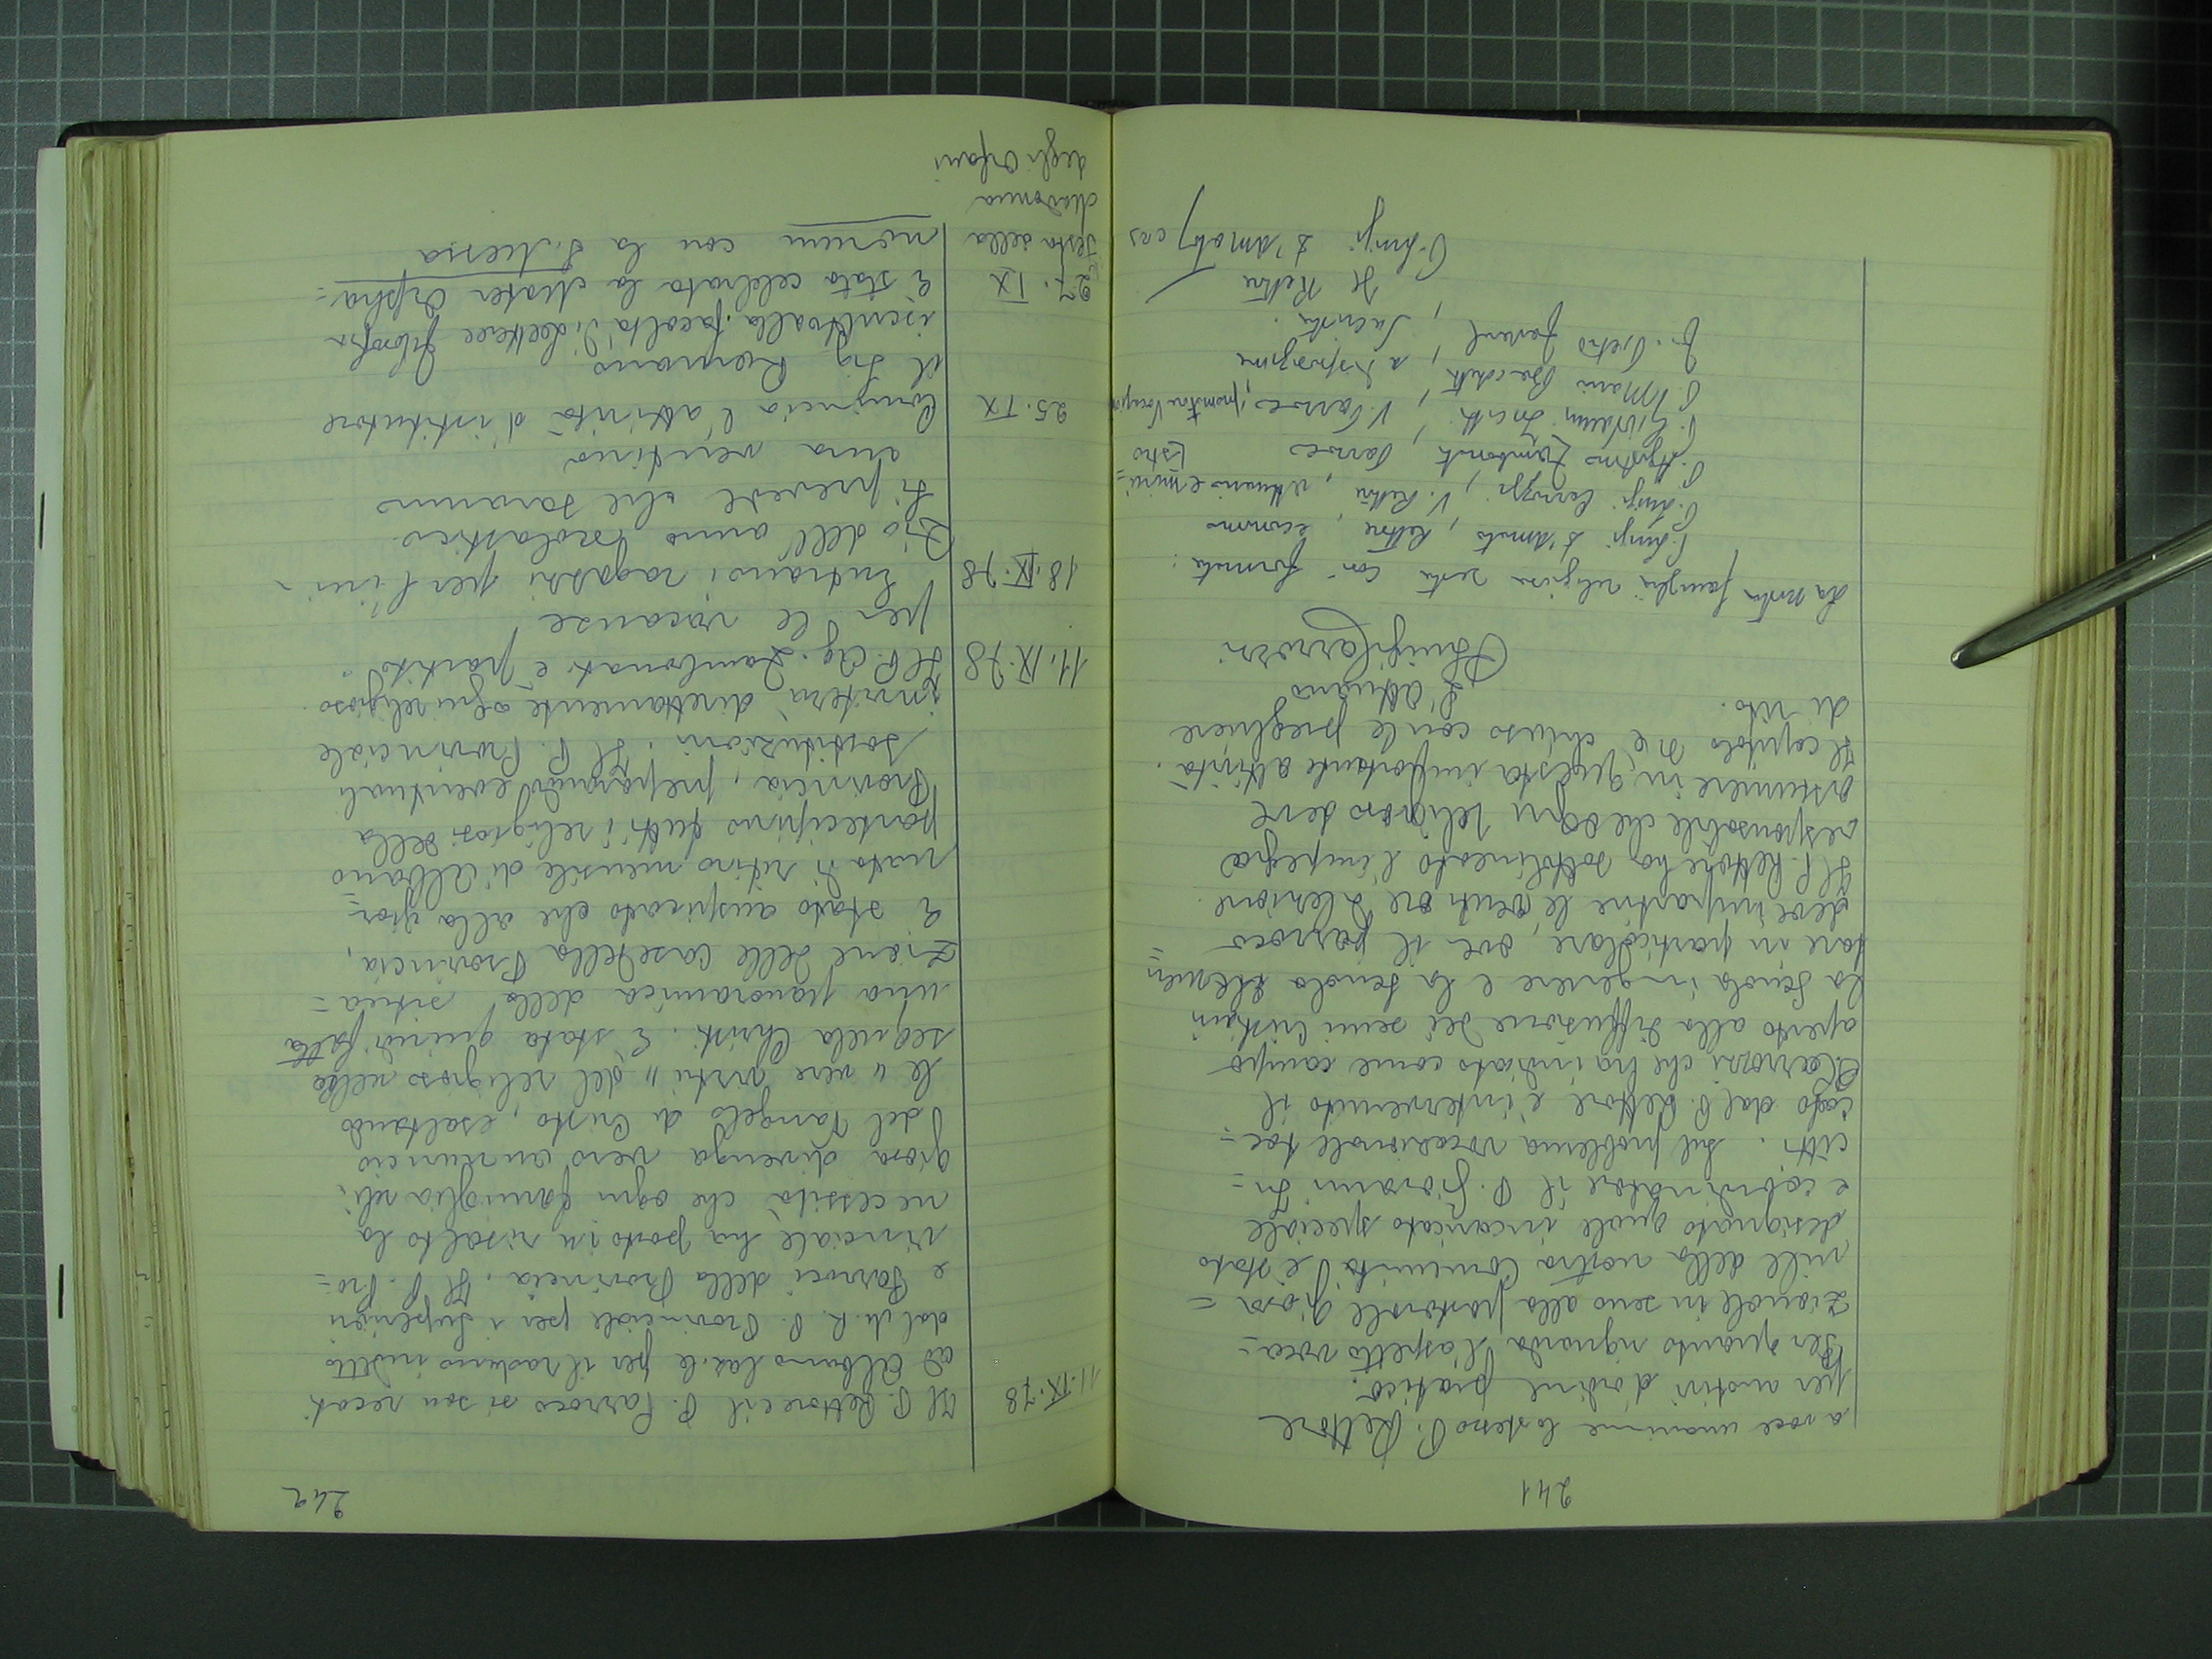 241
a voce unanime lo stesso P. Rettore
per motivi d'ordine pratico.
Per quanto riguarda l'aspetto voca=
zionale in seno alla pastorale giova=
nile della nostra Comunità è stato
designato quale incaricato speciale
e coordinatore il P. Giovanni
citti. Sul problema vocazionale toc=
cato dal P. Rettore è intervenuto il
P. Carrozzi che ha indicato come campo
aperto alla diffusione dei semi cristiani
la Scuola in genere e la Scuola elemen=
tare in particolare, ove il parroco
deve impartire le venti ore di lezione.
Il P. Rettore ha sottolineato l'impegno
responsabile che ogni religioso deve
assumere in questa importante attività.
Il capitolo si è chiuso con le preghiere
di rito.
L'attuario
P. Luigi Carrozzi
La nostra famiglia religiosa resta così formata:
P. Luigi D'Amato, Rettore, economo
P. Luigi Carrozzi, V. Rettore, attuario e mini=
stro
P. Agostino Zambonati, Parroco
P. Giovanni, V. Parroco, promotore Vocazioni
P. Mario Bacchetti, a disposizione
Fr. Pietro, Sacrista.
Il Rettore
P. Luigi D'Amato crs
242
11.IX.78 Il P. Rettore e il P. Parroco si son recati
ad Albano Laz.le per il raduno indetto
dal M. R. P. Provinciale per i Superiori
e Parroci della Provincia. Il P. Pro=
vinciale ha posto in risalto la
necessità che ogni famiglia reli
giosa divenga vero annuncio
del Vangelo di Cristo, esaltando
le "vere virtù" del religioso nella
sequela Christi. È stata quindi fatta
una panoramica della situa=
zione delle Case della Provincia.
È stato auspicato che alla gior=
nata di ritiro mensile di Albano
partecipino tutti i religiosi della
Provincia, preparando eventuali
sostituzioni. Il P. Provinciale
inviterà direttamente ogni religioso.
11.IX.78 Il P. Ag. Zambonati è partito
per le vacanze
18.IX.78 Entrano i ragazzi per l'ini-
zio dell'anno scolastico.
Si prevede che saranno
una ventina
25.IX Comincia l'attività d'istitutore
il Sig. Romano
iscritto alla facoltà di Lettere Filosofia
27.IX È stata celebrata la Mater Orpha=
Festa della norum con la S. Messa
Madonna
degli Orfani